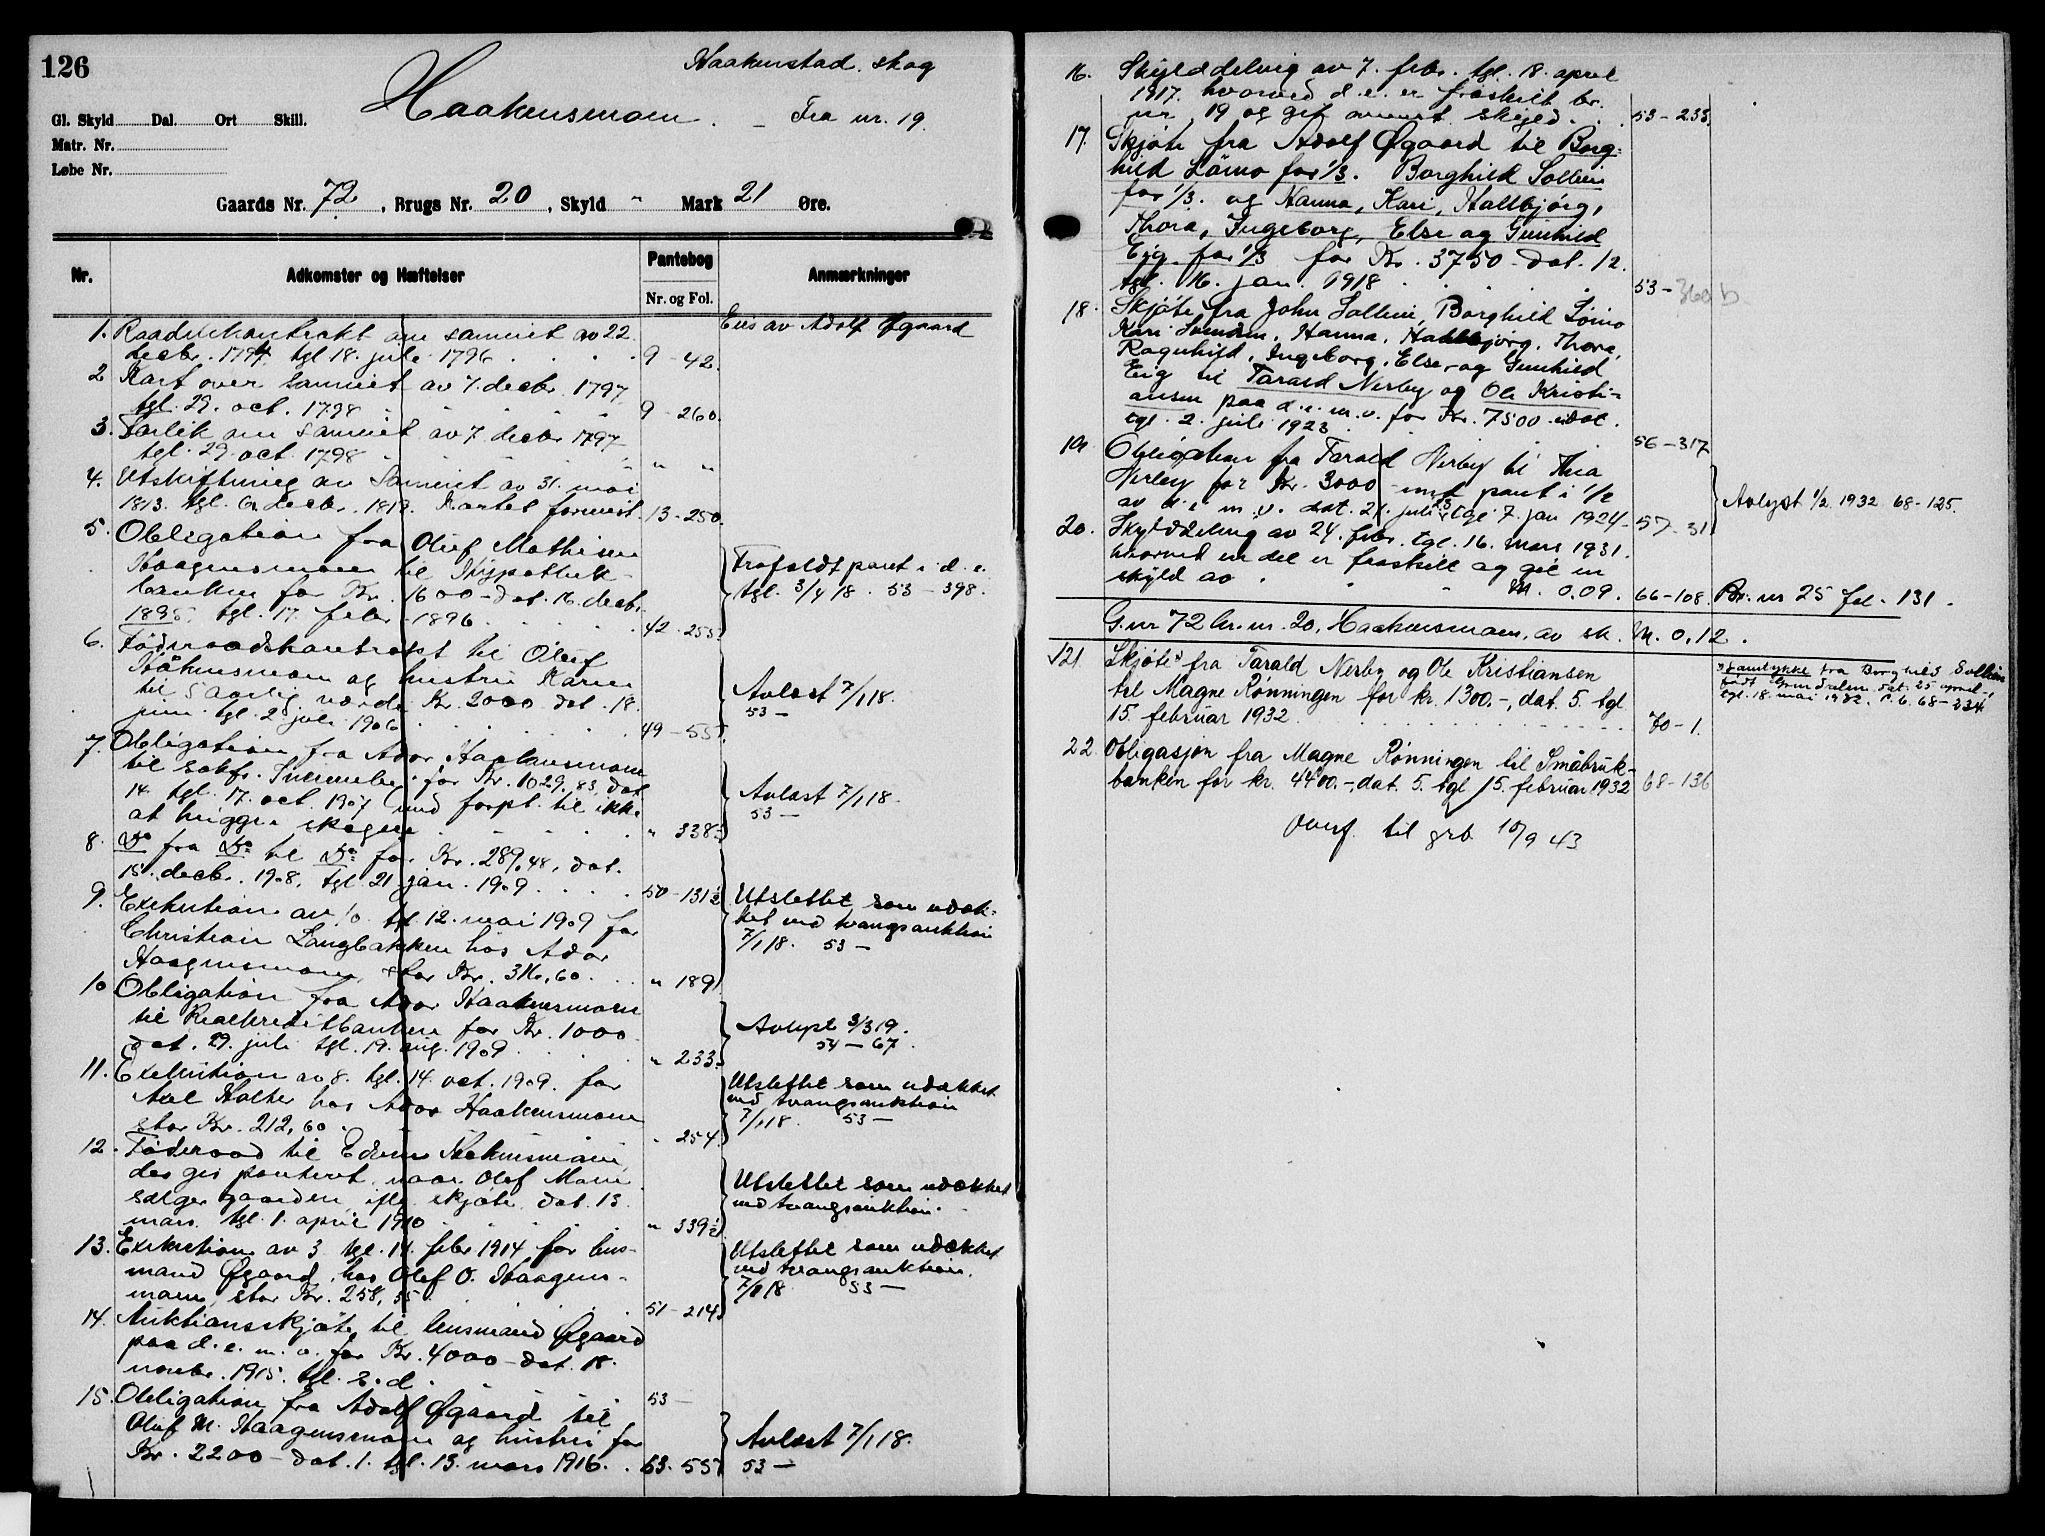 126
Haakenstad skog
Haakensmoen. – Fra nr. 19.
Gl. Skyld Dal. Ort Skill.
Matr. Nr.
Løbe Nr.
Gaards Nr. 72, Brugs Nr. 20, Skyld " Mark 21 Øre.
Nr. Adkomster og Hæftelser Pantebog Anmærkninger
Nr. og Fol.
Eies av Adolf Øgaard
1. Raadekontrakt om samiet av 22.
decbr. 1794 tgl 18. juli 1796 9 - 42.
2 Kart over samiet av 7. decbr. 1797
tgl. 29. oct. 1798 9 - 260.
3. Forlik om samiet av 7. decbr 1797
tgl. 29. oct. 1798 " "
4. Utskiftning av samiet av 31. mai
1813. tgl. 6. decbr. 1819. Kartet forevist. 13 - 250.
5. Obligation fra Oluf Mathisen
Haagensmoen til Hypothek-
banken for Kr. 1600 - dat. 16. decbr.
1895, tgl. 17. febr 1896 42 - 255
Frafaldt pant i d. e.
tgl. 3/4 18. 53 - 398.
6. Føderaadskontrakt til Oluf
Håkensmoen og hustru Karen
til 5 aarlig værdi Kr. 2000 dat. 18
juni tgl. 2. juli 1906 49 - 55.
Avlæst 7/1 18.
53 –
7. Obligation fra Ador Haakensmoen
til sakf. for Kr. 1029,83, dat
14. tgl. 17. oct. 1907 med forpl. til ikke
at hugge skogen " 338
Avlæst 7/1 18.
53 –
8. Do fra Do til Do for Kr. 289,48, dat.
15. decbr. 1908, tgl. 21 jan. 1909 50 - 131
9. Exekution av 10. tgl. 12. mai 1909 for
Christian Langbakken hos Ador
Haagensmoen, stor Kr. 316,60. " 189
Utslettet som udæk-
ket ved tvangsauktion
7/1 18. 53 –
10 Obligation fra Ador Haakensmoen
til Realkreditbanken for Kr. 1000
dat. 29. juli tgl. 19. aug. 1909 " 233.
Avlyst 3/3 19.
54 – 67.
11. Exekution av 8. tgl. 14. oct. 1909. for
Axel Holter hos Ador Haakensmoen
stor Kr. 212,60 " 254.
Utslettet som udækket
ved tvangsauktion
7/1 18. 53 –
12. Føderaad til Edvin Haakensmoen,
der gis panteret, naar Olef Moen
sælger gaarden, ifl. skjøte dat. 13
mars tgl. 1. april 1910 " 339
Utslettet som udækket
ved tvangsauktion.
13. Exekution av 3 tgl. 14. febr 1914 for lens-
mand Øgaard hos Olef O. Haagens-
moen, stor Kr. 258,55. 51 - 214
Utslettet som udækket
ved tvangsauktion.
7/1 18 53 –
14. Auktionsskjøte til lensmand Øgaard
paa d. e. m. v. for Kr. 4000 - dat. 18.
novbr. 1915. tgl. s. d. 53 –
15. Obligation fra Adolf Øgaard til
Oluf M. Haagensmoen og hustru for
Kr. 2200 - dat. 1. tgl. 13. mars 1916. 53 - 55
Avlæst 7/1 18.
53 –
16. Skylddelnig av 7. febr. tgl. 18. april
1917. hvorved d. e. er fraskilt br.
nr. 19 og git anført skyld. 53 - 233.
17. Skjøte fra Adolf Øgaard til Borg-
hild Lömo for 1/3. Borghild Sollien
for 1/3. og Hanna, Kari, Hallbjørg,
Thora, Ingeborg, Else og Gunhild
Eig for 1/3 for Kr. 3750 - dat. 12.
tgl. 16. jan. 1918 53 - 360 b
18. Skjøte fra John Sollien, Borghild Lömo
Kari Svendsen, Hanna, Hallbjørg, Thora,
Ragnhild, Ingeborg, Else og Gunhild
Eig til Tarald Nerby og Ole Kristi-
ansen paa d. e. m. v. for Kr. 7500 - udat.
tgl. 2. juli 1923 56 - 317
19. Obligation fra Tarald Nerby til Thea
Nerby for Kr. 3000 - med pant i 1/2
av d. e. m. v. dat. 21. juli 23 tgl 7. jan 1924 - 57 - 31
Avlyst 1/2 1932 68 - 125.
20. Skylddeling av 24. febr. tgl. 16. mars 1931.
hvorved en del er fraskilt og git en
skyld av M. 0.09. 66 - 108. Br. nr 25 fol. 131.
G. nr 72 br. nr. 20, Haakensmoen, av sk. M. 0,12.
21. Skjøte x) fra Tarald Nerby og Ole Kristiansen
til Magne Rønningen for kr. 1300.-, dat. 5. tgl
15. februar 1932 70 - 1.
x) Samtykke fra Borghild Sollien
født Gundersen dat. 25 april
tgl. 18. mai 1932. P. b. 68 - 334
22. Obligasjon fra Magne Rønningen til Småbruk-
banken for kr. 4400.-, dat. 5. tgl 15. februar 1932 68 - 136
Overf. til grb. 10/9 43